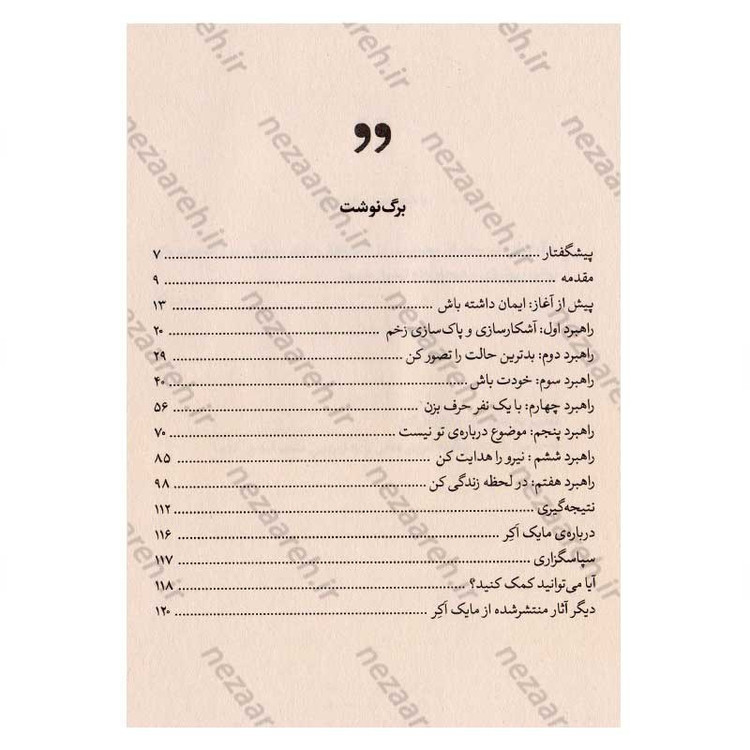 برگ‌نوشت
پیشگفتار ........ ۷
مقدمه ........ ۹
پیش از آغاز: ایمان داشته باش ........ ۱۳
راهبرد اول: آشکارسازی و پاک‌سازی زخم ........ ۲۰
راهبرد دوم: بدترین حالت را تصور کن ........ ۲۹
راهبرد سوم: خودت باش ........ ۴۰
راهبرد چهارم: با یک نفر حرف بزن ........ ۵۶
راهبرد پنجم: موضوع درباره‌ی تو نیست ........ ۷۰
راهبرد ششم : نیرو را هدایت کن ........ ۸۵
راهبرد هفتم: در لحظه زندگی کن ........ ۹۸
نتیجه‌گیری ........ ۱۱۲
درباره‌ی مایک اَکِر ........ ۱۱۶
سپاسگزاری ........ ۱۱۷
آیا می‌توانید کمک کنید؟ ........ ۱۱۸
دیگر آثار منتشرشده از مایک اَکِر ........ ۱۲۰
nezaareh.ir